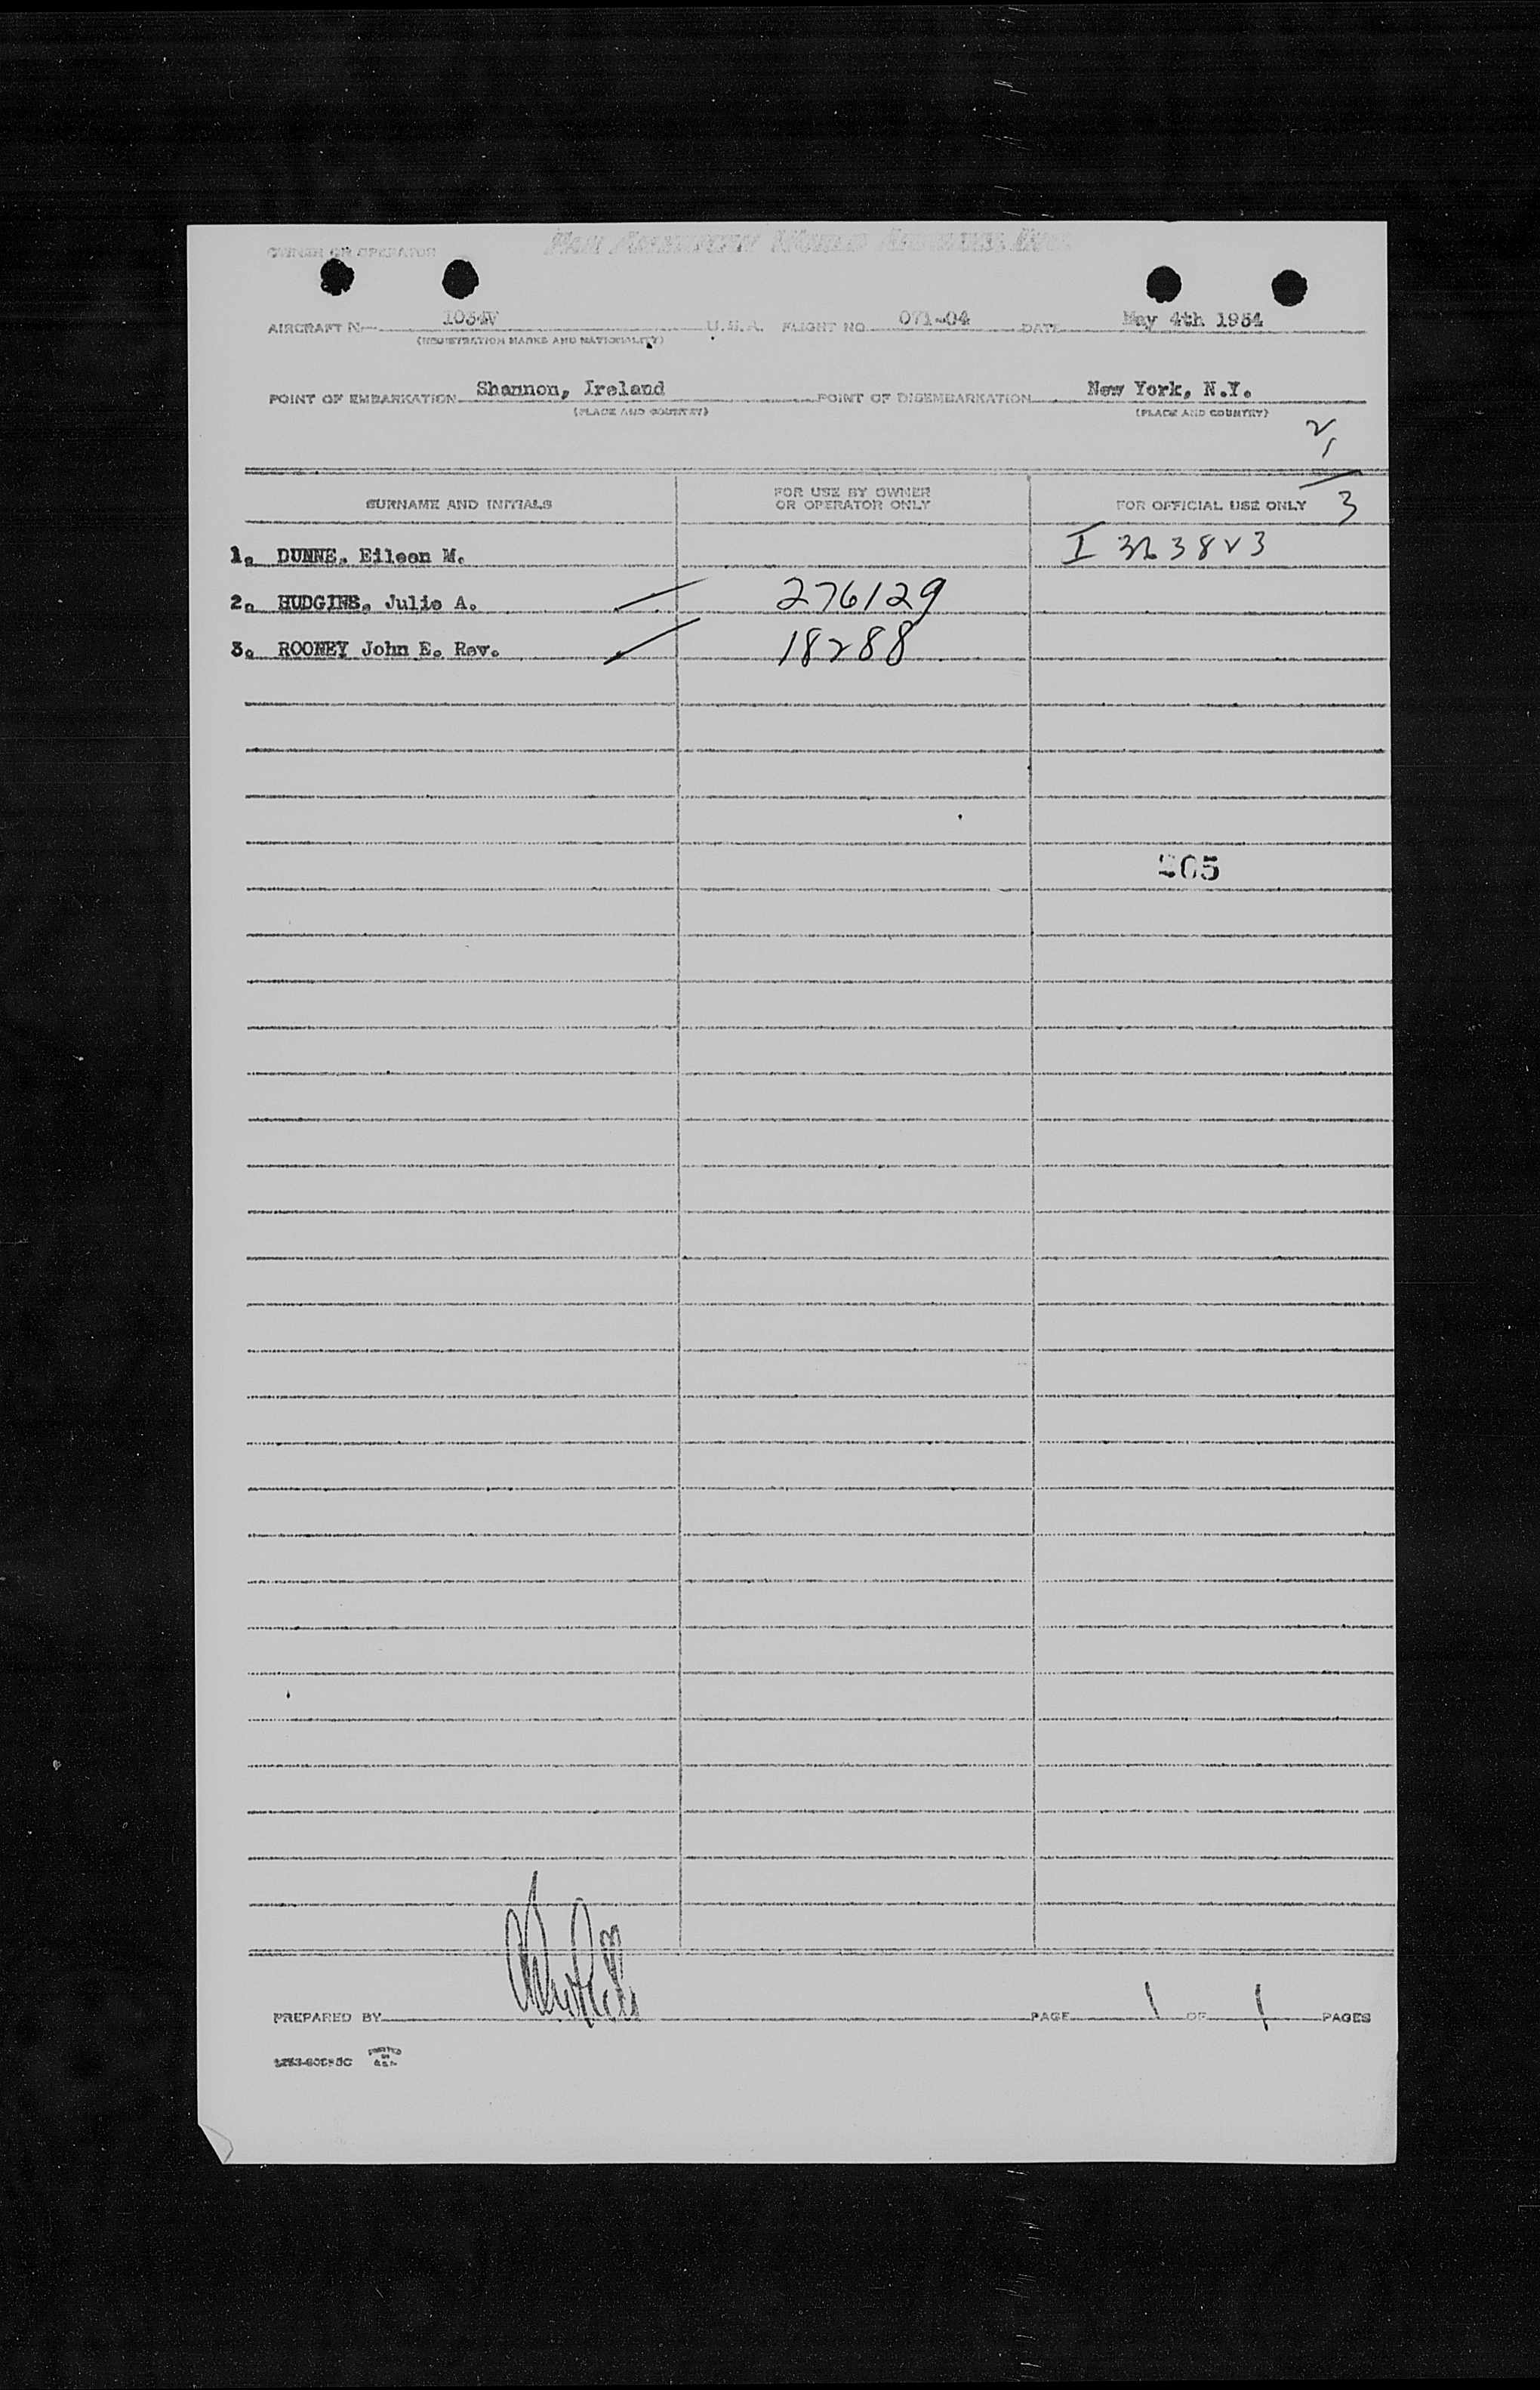 OWNER OR OPERATOR PAN AMERICAN WORLD AIRWAYS, INC.
AIRCRAFT N— 1034V U.S.A. FLIGHT NO. 071-04 DATE May 4th 1954
(REGISTRATION MARKS AND NATIONALITY)
POINT OF EMBARKATION Shannon, Ireland POINT OF DISEMBARKATION New York, N.Y.
(PLACE AND COUNTRY) (PLACE AND COUNTRY)
2
1
3
SURNAME AND INITIALS FOR USE BY OWNER OR OPERATOR ONLY FOR OFFICIAL USE ONLY
1. DUNNE, Eileen M. I
2. HUDGINS, Julie A. 276129
3. ROONEY John E. Rev. 18288
205
PREPARED BY PAGE 1 OF 1 PAGES
PRINTED IN U.S.A.